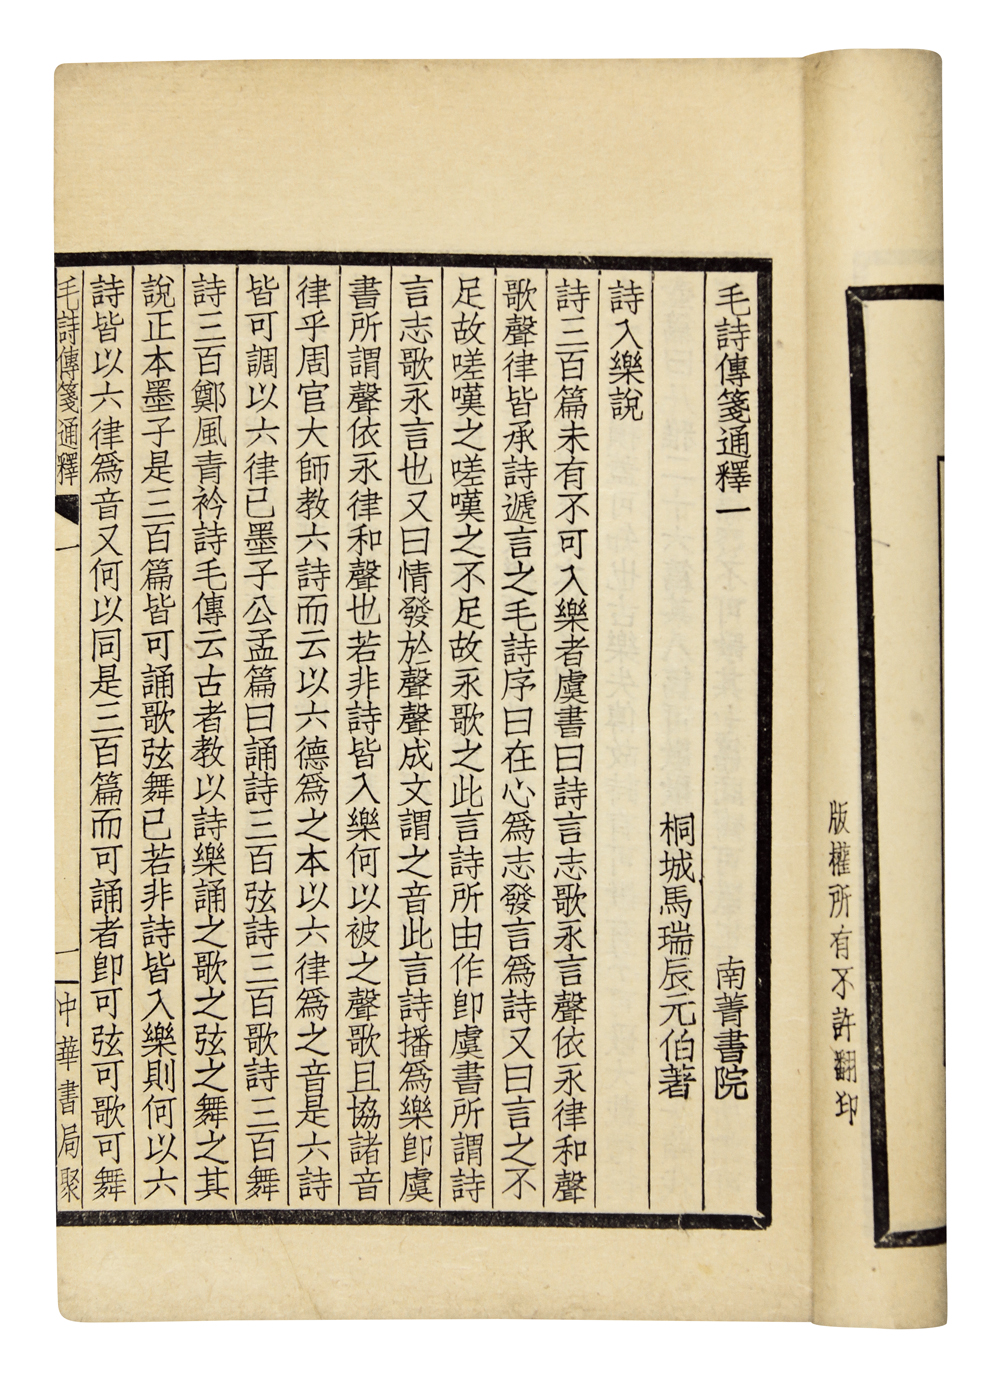 版權所有不許翻印
毛詩傳箋通釋一　南菁書院
桐城馬瑞辰元伯著
詩入樂說
詩三百篇未有不可入樂者虞書曰詩言志歌永言聲依永律和聲
歌聲律皆承詩遞言之毛詩序曰在心為志發言為詩又曰言之不
足故嗟嘆之嗟嘆之不足故永歌之此言詩所由作卽虞書所謂詩
言志歌永言也又曰情發於聲聲成文謂之音此言詩播為樂卽虞
書所謂聲依永律和聲也若非詩皆入樂何以被之聲歌且協諸音
律乎周官大師教六詩而云以六德為之本以六律為之音是六詩
皆可調以六律已墨子公孟篇曰誦詩三百弦詩三百歌詩三百舞
詩三百鄭風青衿詩毛傳云古者教以詩樂誦之歌之弦之舞之其
說正本墨子是三百篇皆可誦歌弦舞已若非詩皆入樂則何以六
詩皆以六律為音又何以同是三百篇而可誦者卽可弦可歌可舞
毛詩傳箋通釋　一　一　中華書局聚